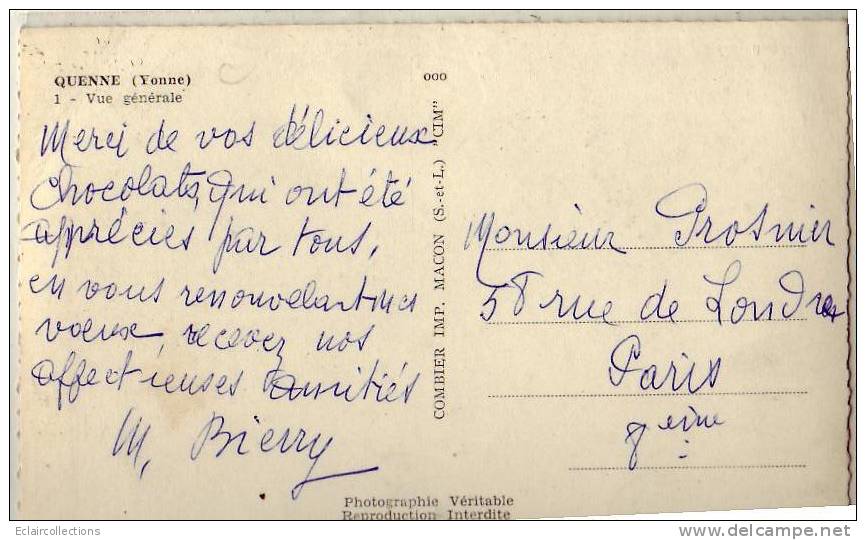 QUENNE (Yonne)
1 - Vue générale
Merci de vos délicieux
chocolats, qui ont été
appréciés par tous,
en vous renouvelant mes
voeux, recevez nos
affectueuses amitiés
M. Bierry
ooo
COMBIER IMP. MACON (S.-et-L.) "CIM"
Monsieur Prosnier
58 rue de Londres
Paris
8eme
Photographie Véritable
Reproduction Interdite
Eclaircollections
www.delcampe.net